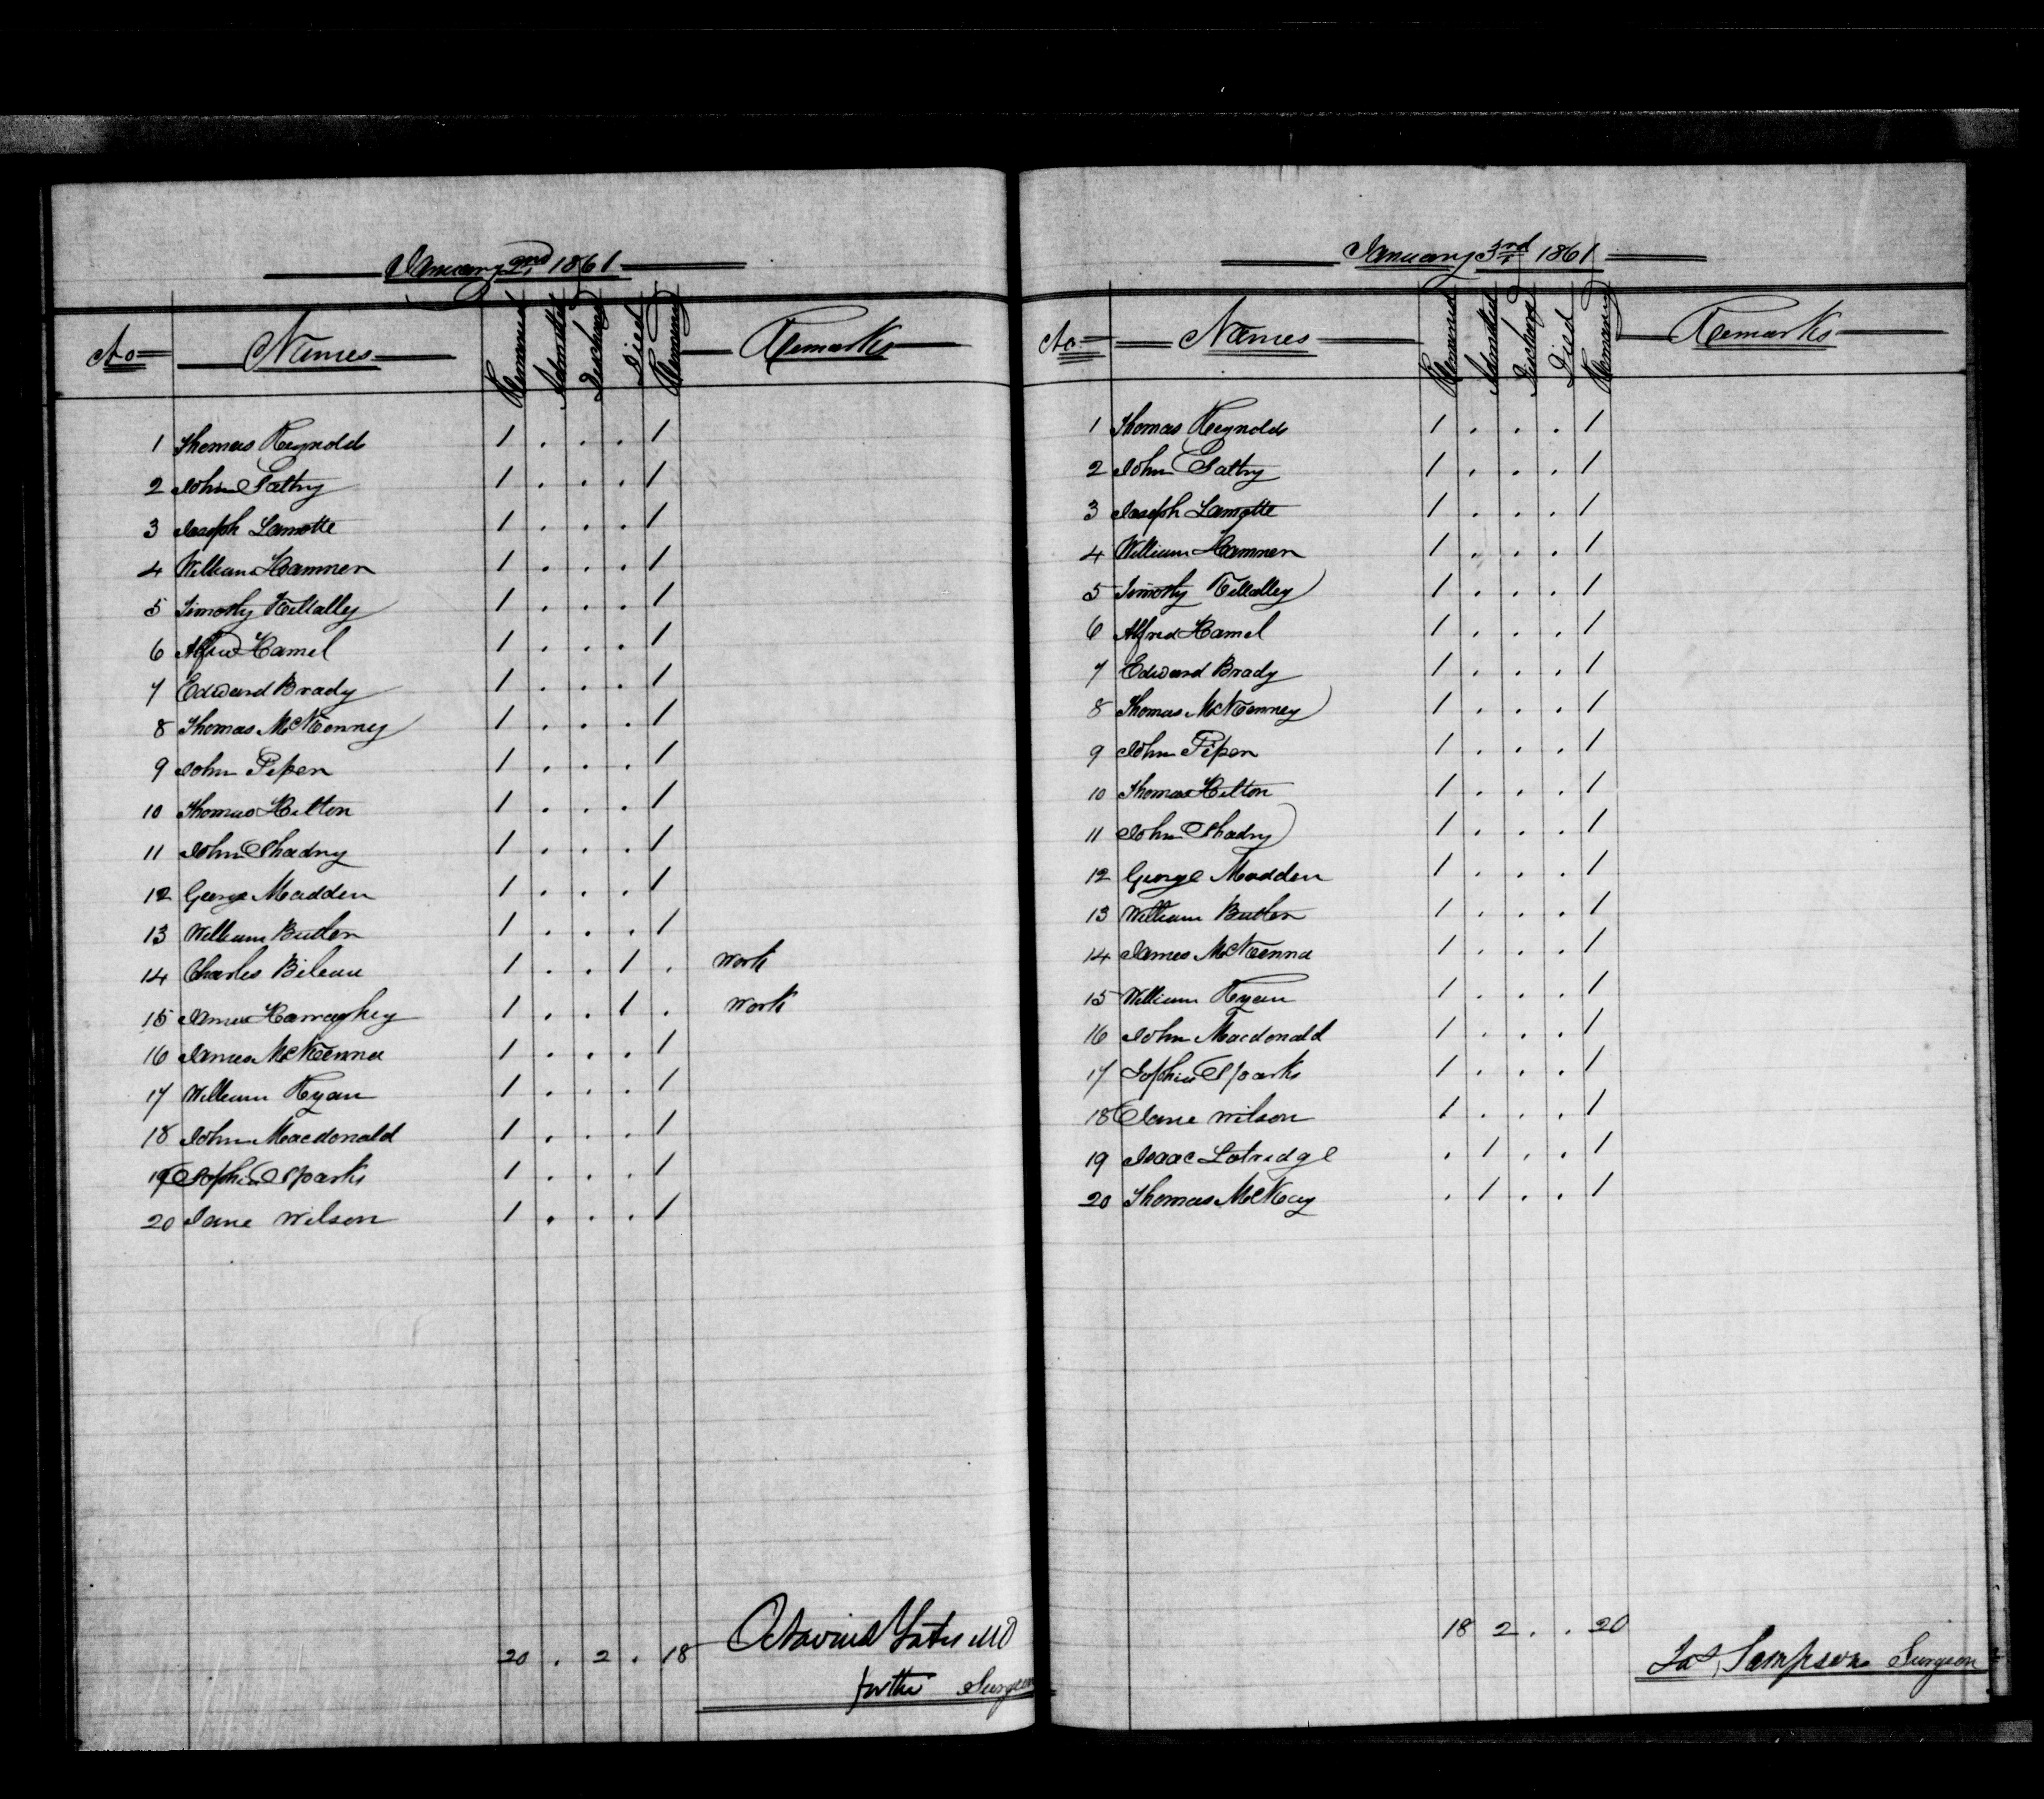 January 2nd 1861
No Names Remained Admitted Discharged Died Remaining Remarks
1 Thomas Reynolds 1 . . . 1
2 John Saltry 1 . . . 1
3 Joseph Lamotte 1 . . . 1
4 William Hamner 1 . . . 1
5 Timothy Killalley 1 . . . 1
6 Alfred Hamel 1 . . . 1
7 Edward Brady 1 . . . 1
8 Thomas McKenney 1 . . . 1
9 John Piper 1 . . . 1
10 Thomas Hilton 1 . . . 1
11 John Shadry 1 . . . 1
12 George Madden 1 . . . 1
13 William Butler 1 . . . 1
14 Charles Bileau 1 . . 1 . Work
15 James Harraghey 1 . . 1 . Work
16 James McKenna 1 . . . 1
17 William Ryan 1 . . . 1
18 John Macdonald 1 . . . 1
19 Sophia Sparks 1 . . . 1
20 Jane Wilson 1 . . . 1
20 . 2 . 18
Octavius Yates MD
for the Surgeon
January 3rd 1861
No Names Remained Admitted Discharged Died Remaining Remarks
1 Thomas Reynolds 1 . . . 1
2 John Saltry 1 . . . 1
3 Joseph Lamotte 1 . . . 1
4 William Hamner 1 . . . 1
5 Timothy Killalley 1 . . . 1
6 Alfred Hamel 1 . . . 1
7 Edward Brady 1 . . . 1
8 Thomas McKenney 1 . . . 1
9 John Piper 1 . . . 1
10 Thomas Hilton 1 . . . 1
11 John Shadry 1 . . . 1
12 George Madden 1 . . . 1
13 William Butler 1 . . . 1
14 James McKenna 1 . . . 1
15 William Ryan 1 . . . 1
16 John Macdonald 1 . . . 1
17 Sophia Sparks 1 . . . 1
18 Jane Wilson 1 . . . 1
19 Isaac Lotridge . 1 . . 1
20 Thomas McKay . 1 . . 1
18 2 . . 20
Jas Sampson Surgeon